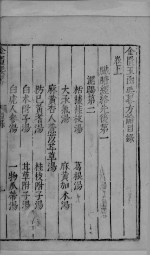 金匱玉函要略方論目録
卷上
臟腑經絡先後第一
痙濕暍第二
栝樓桂枝湯
葛根湯
大承氣湯
麻黃加朮湯
麻黃杏人薏苡甘草湯
防己黃耆湯
桂枝附子湯
白朮附子湯
甘草附子湯
白虎人參湯
一物瓜蒂湯